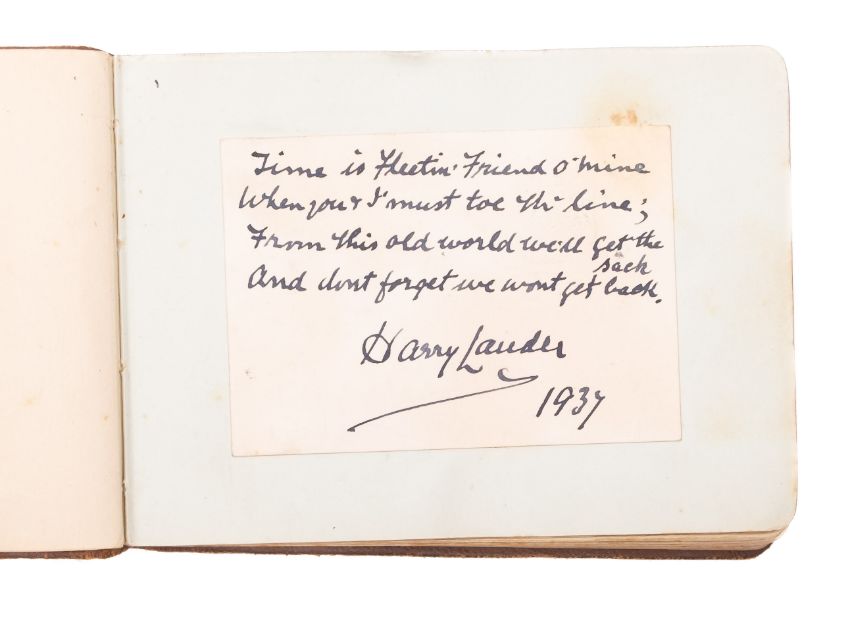 Time is Fleetin' Friend O' mine
When you & I must toe th' line;
From this old world we'll get the
sack
And dont forget we wont get back.
Harry Lauder
1937